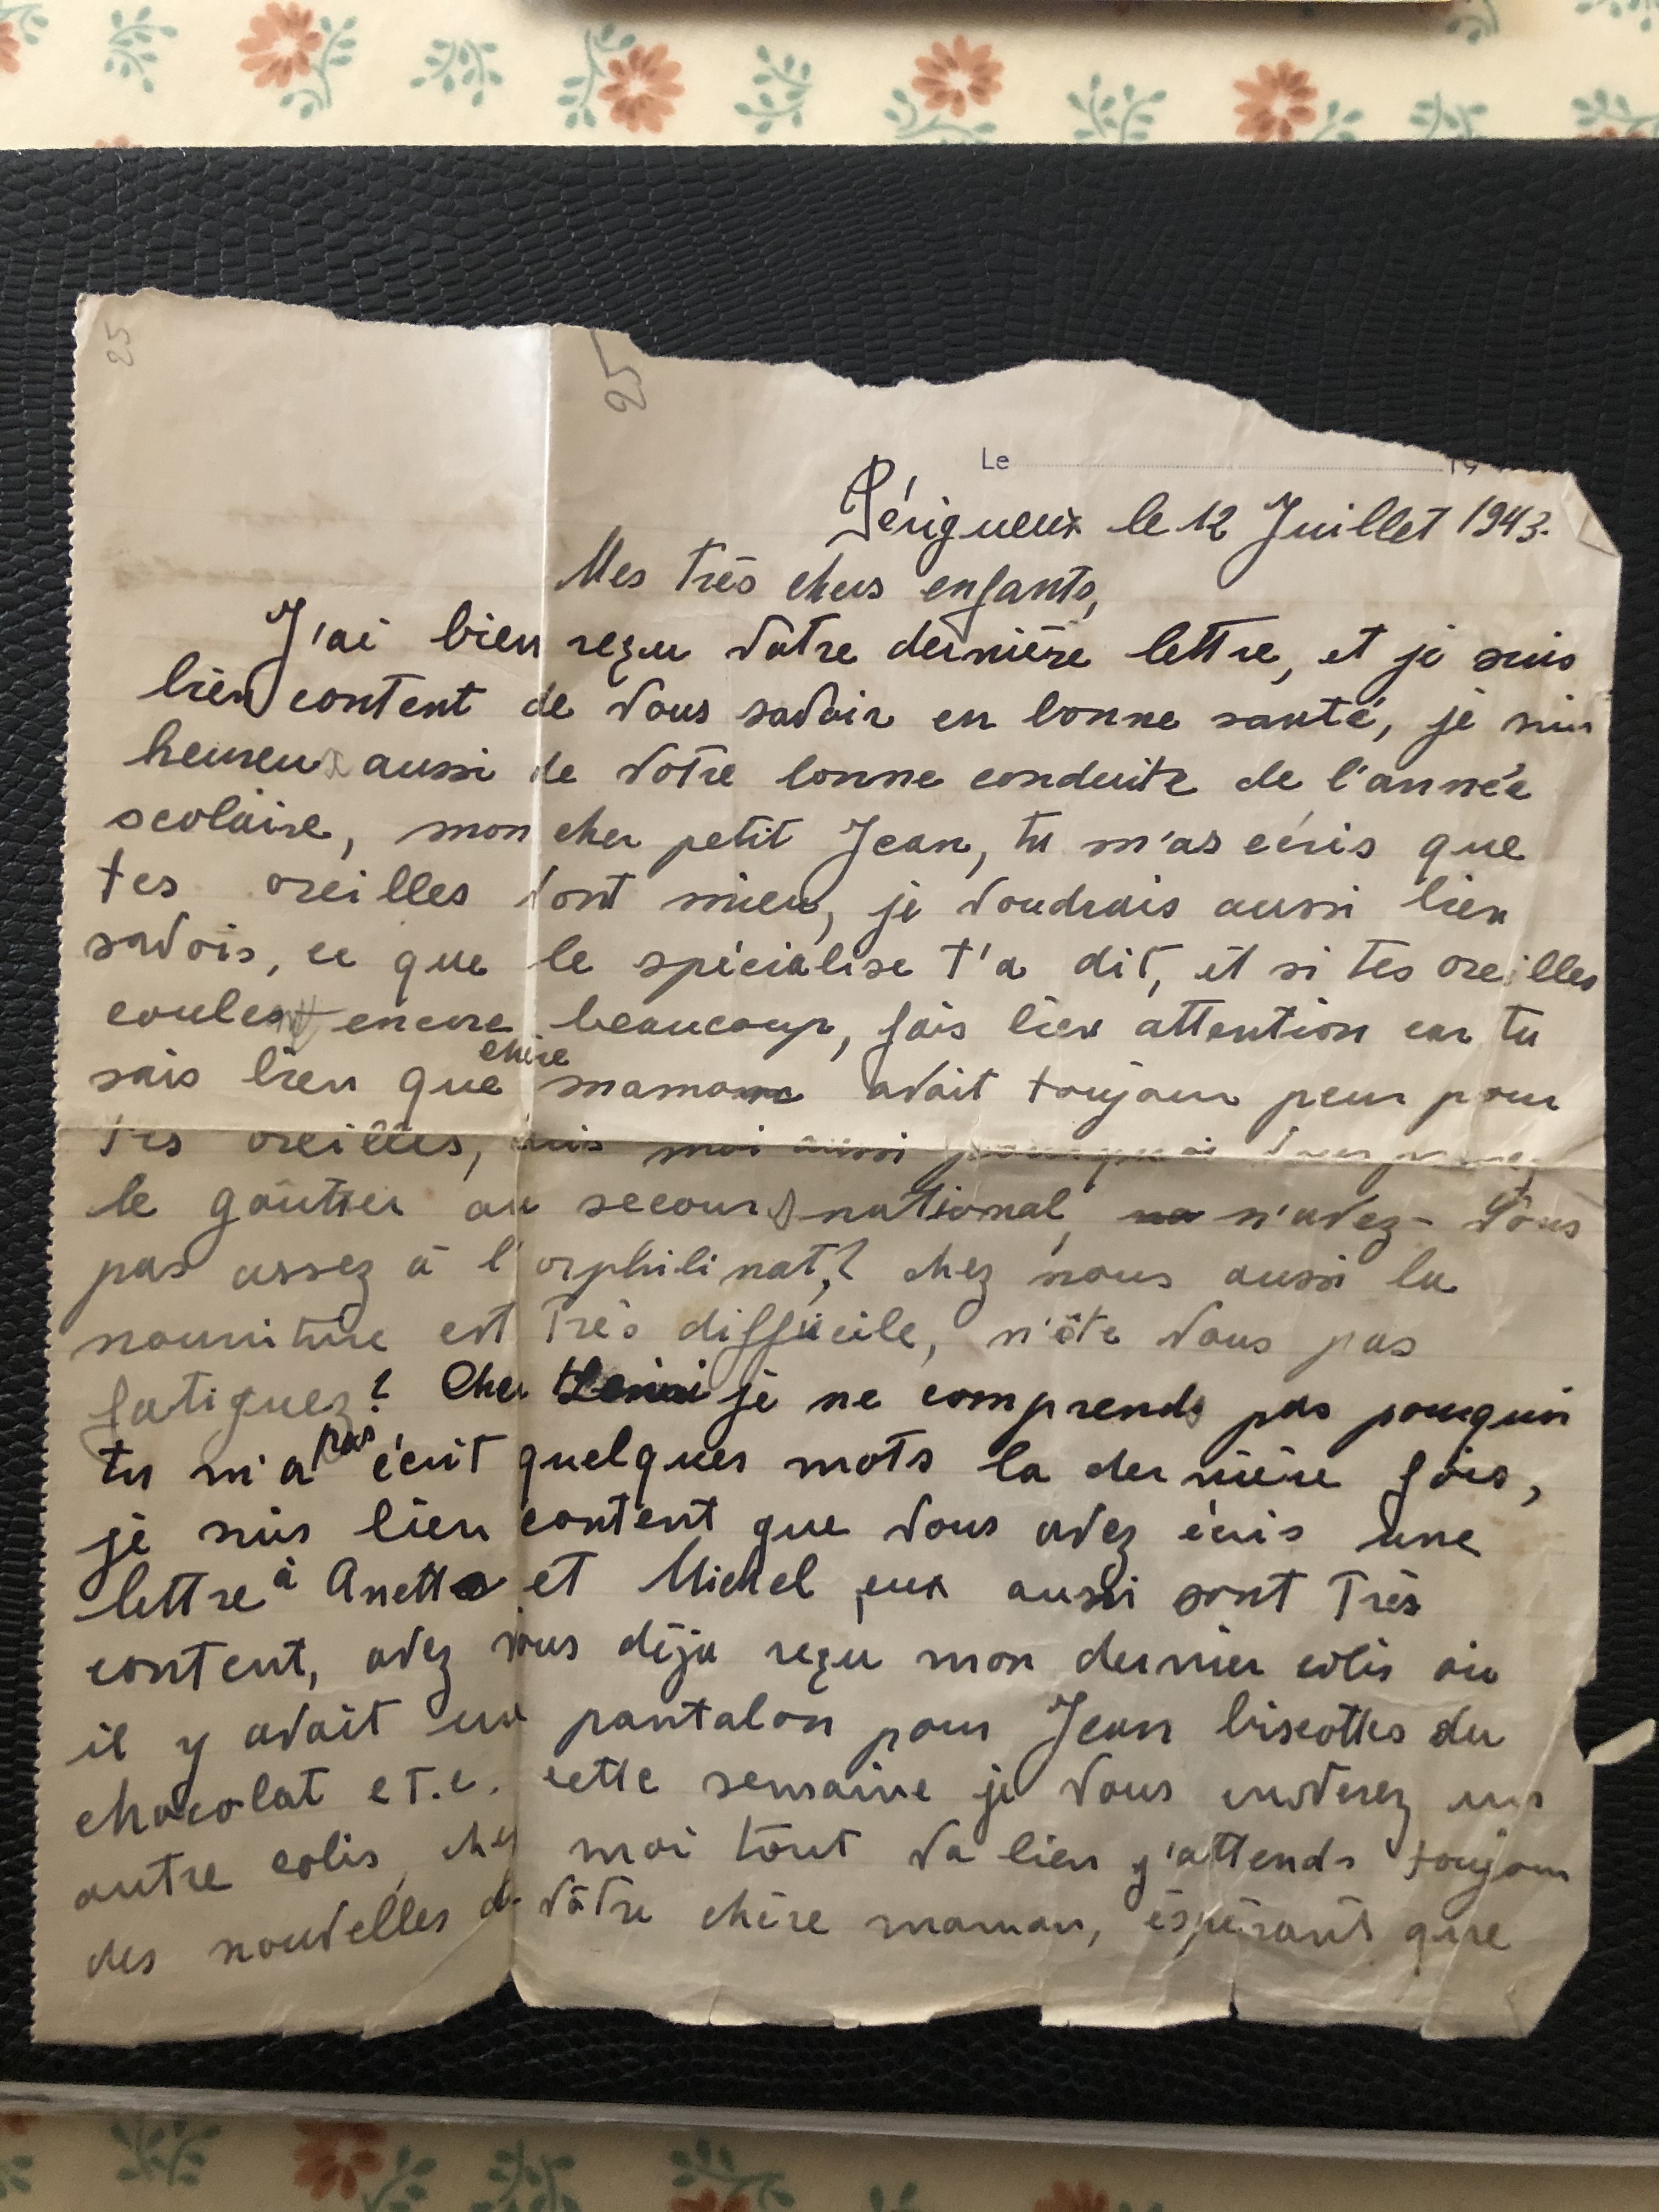 25
25
Le 19
Périgueux le 12 Juillet 1943.
Mes très chers enfants,
J'ai bien reçu vôtre dernière lettre, et je suis
bien content de vous savoir en bonne santé, je suis
heureux aussi de votre bonne conduite de l'année
scolaire, mon cher petit Jean, tu m'as écris que
tes oreilles vont mieu, je voudrais aussi bien
savois, ce que le spécialise t'a dit, et si tes oreilles
coulent encore beaucoup, fais bien attention car tu
sais bien que chère maman avait toujour peur pour
tes oreilles, moi aussi pourquoi
le goûtter au secours national, n'avez-vous
pas assez à l'orphilinat,? chez nous aussi la
nourriture est très difficile, n'ête vous pas
fatiguez? Cher je ne comprends pas pourquoi
tu m'a pas écrit quelques mots la dernière fois,
je suis bien content que vous avez écris une
lettre à Anette et Michel eux aussi sont très
content, avez vous déja reçu mon dernier colis où
il y avait un pantalon pour Jean biscottes du
chocolat et.c. cette semaine je vous enverez un
autre colis, chez moi tout va bien j'attends toujour
des nouvelles de vôtre chère maman, éspérant que